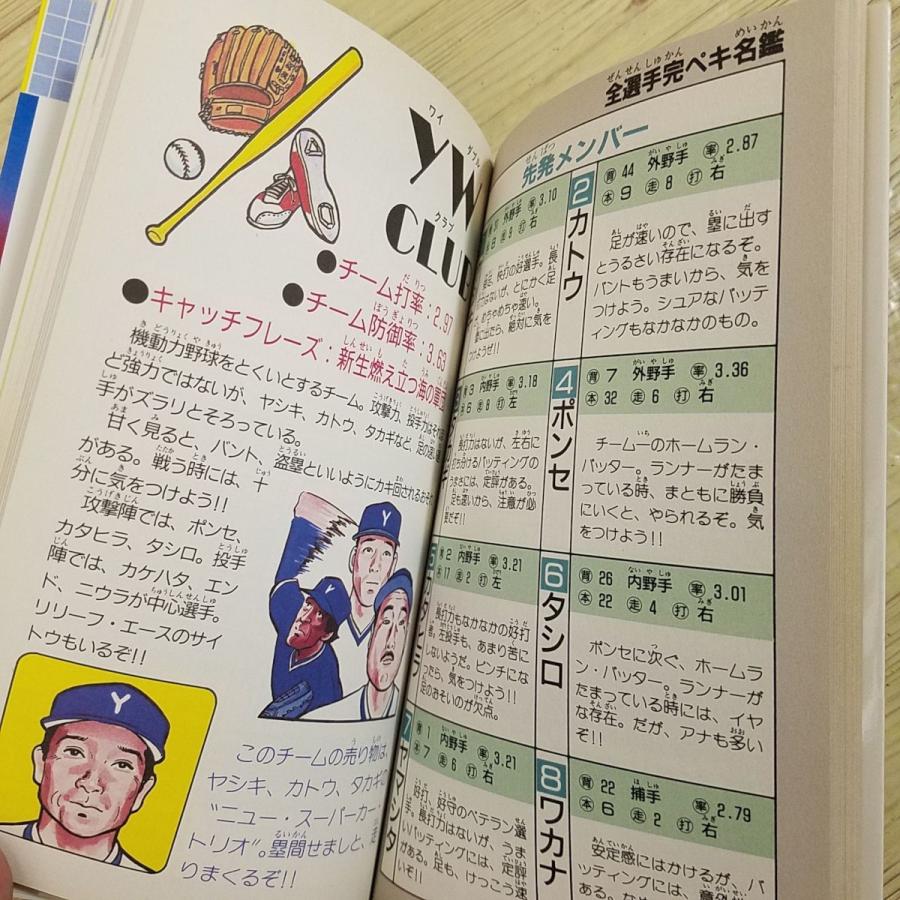 YW
CLUB
●チーム打率：2.97
●チーム防御率：3.63
●キャッチフレーズ：新生燃え立つ海の軍団
機動力野球をとくいとするチーム。攻撃力、投手力はそれほ
ど強力ではないが、ヤシキ、カトウ、タカギなど、足の速い選
手がズラリとそろっている。
甘く見ると、バント、盗塁といいようにカキ回されるおそれ
がある。戦う時には、十
分に気をつけよう!!
攻撃陣では、ポンセ、
カタヒラ、タシロ。投手
陣では、カケハタ、エン
ド、ニウラが中心選手。
リリーフ・エースのサイ
トウもいるぞ!!
Y
Y
このチームの売り物は、
ヤシキ、カトウ、タカギに
“ニュー・スーパーカー・
トリオ”。塁間せましと、走
りまくるぞ!!
全選手完ペキ名鑑
先発メンバー
外野手 率3.10
8 走9 打右
快打の好選手。長
はないが、とにかく足
めちゃめちゃ速い。
塁に出たら、絶対に気を
つけようぜ!!
2 カトウ
背44 外野手 率2.87
本9 走8 打右
足が速いので、塁に出す
とうるさい存在になるぞ。
バントもうまいから、気を
つけよう。シュアなバッテ
ィングもなかなかのもの。
背3 内野手 率3.18
本6 走8 打左
長打力はないが、左右に
打ち分けるバッティングの
うまさには、定評がある。
足も速いから、注意が必
要だぞ!!
4 ポンセ
背7 外野手 率3.36
本32 走6 打右
チーム一のホームラン・
バッター。ランナーがたま
っている時、まともに勝負
にいくと、やられるぞ。気
をつけよう!!
5 カタヒラ
背2 内野手 率3.21
本17 走2 打左
長打力もなかなかの好打
者。左投手も、あまり苦に
しないようだ。ピンチにな
ったら、気をつけよう!!
足のおそいのが欠点。
6 タシロ
背26 内野手 率3.01
本22 走4 打右
ポンセに次ぐ、ホームラ
ン・バッター。ランナーが
たまっている時には、イヤ
な存在。だが、アナも多い
ぞ!!
7 ヤマシタ
背1 内野手 率3.21
本7 走6 打右
好打、好守のベテラン選
手。長打力はないが、うま
いバッティングには、定評
がある。足も、けっこう速
いぞ!!
8 ワカナ
背22 捕手 率2.79
本6 走2 打右
安定感にはかけるが、バ
ッティングには、意外